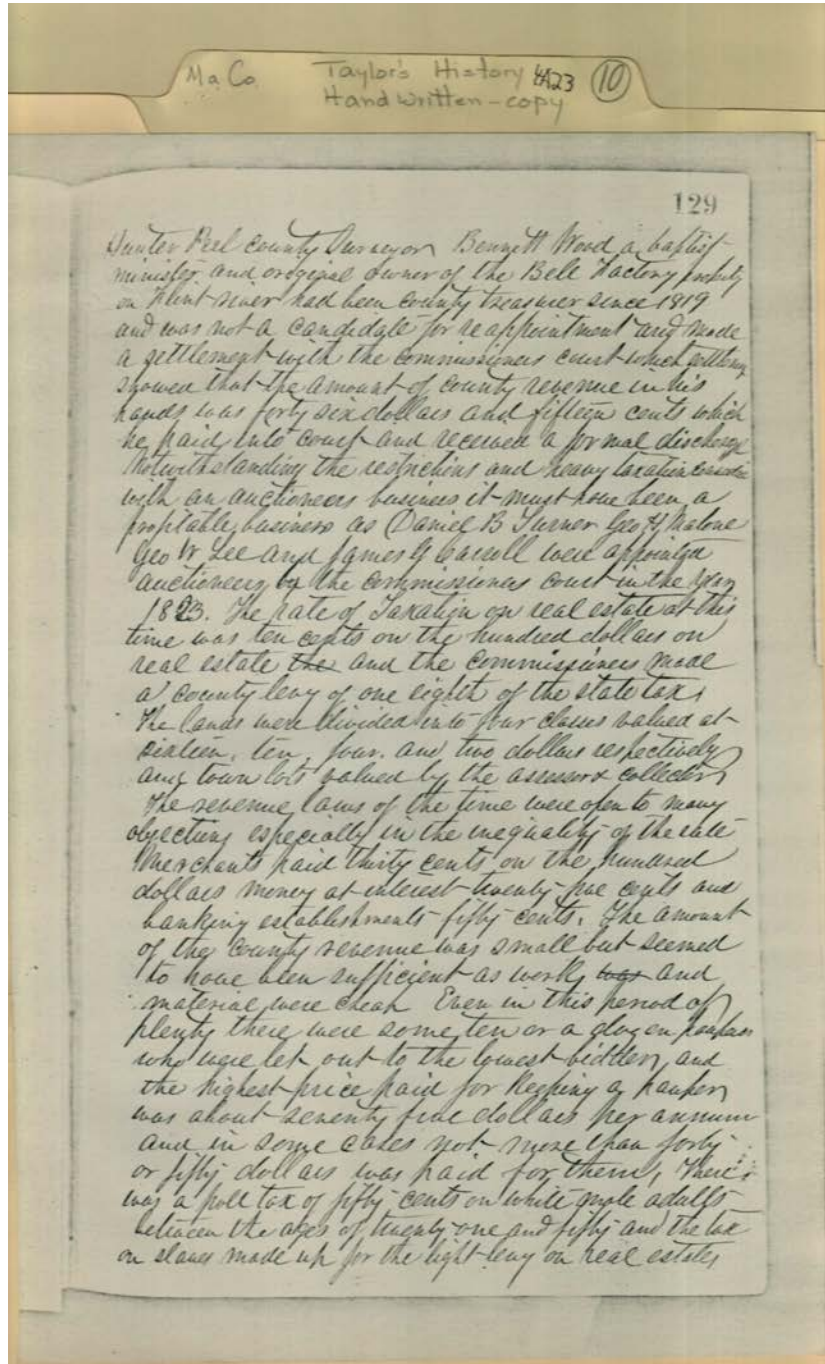 Ma Co Taylor's History 4A23 10
Handwritten-copy
129
Hunter Peel county Surveyor Bennett Wood a baptist
minister and original owner of the Bell Factory property
on Flint river had been county treasurer since 1819
and was not a candidate for reappointment and made
a settlement with the commissioners court which
showed that the amount of county revenue in his
hands was forty six dollars and fifteen cents which
he paid into court and received a formal discharge
Notwithstanding the restrictions and heavy taxation
with an auctioneers business it must have been a
profitable business as Daniel B Turner Geo H Malone
Geo W Lee and James G Carroll were appointed
auctioneers by the commissioners court in the year
1823. The rate of Taxation on real estate at this
time was ten cents on the hundred dollars on
real estate the and the commissioners made
a county levy of one eighth of the state tax.
The lands were divided into four classes valued at
sixteen, ten, four. and two dollars respectively
and town lots valued by the assessor & collector
The revenue laws of the time were open to many
objections especially in the inequality of the rate
Merchants paid thirty cents on the hundred
dollars money at interest twenty five cents and
banking establishments fifty cents. The amount
of the county revenue was small but seemed
to have been sufficient as work was and
material were cheap Even in this period of
plenty there were some ten or a dozen paupers
who were let out to the lowest bidder, and
the highest price paid for keeping a pauper
was about seventy five dollars per annum
and in some cases not more than forty
or fifty dollars was paid for them, There
was a poll tax of fifty cents on white male adults
between the ages of twenty one and fifty and the tax
on slaves made up for the light levy on real estate